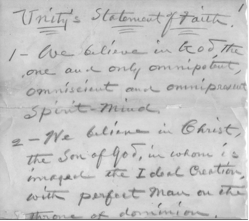 Unity's Statement of Faith.
1 - We believe in God, the
one and only omnipotent,
omniscient and omnipresent
Spirit-Mind.
2 - We believe in Christ,
the Son of God, in whom is
imaged the Ideal Creation,
with perfect Man on the
throne of dominion.